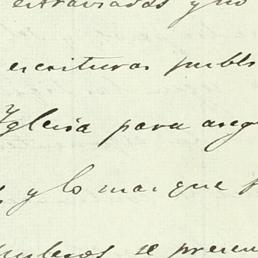 extraviados y no
escrituras publi
Iglesia para aseg
y lo mas que p
se presen